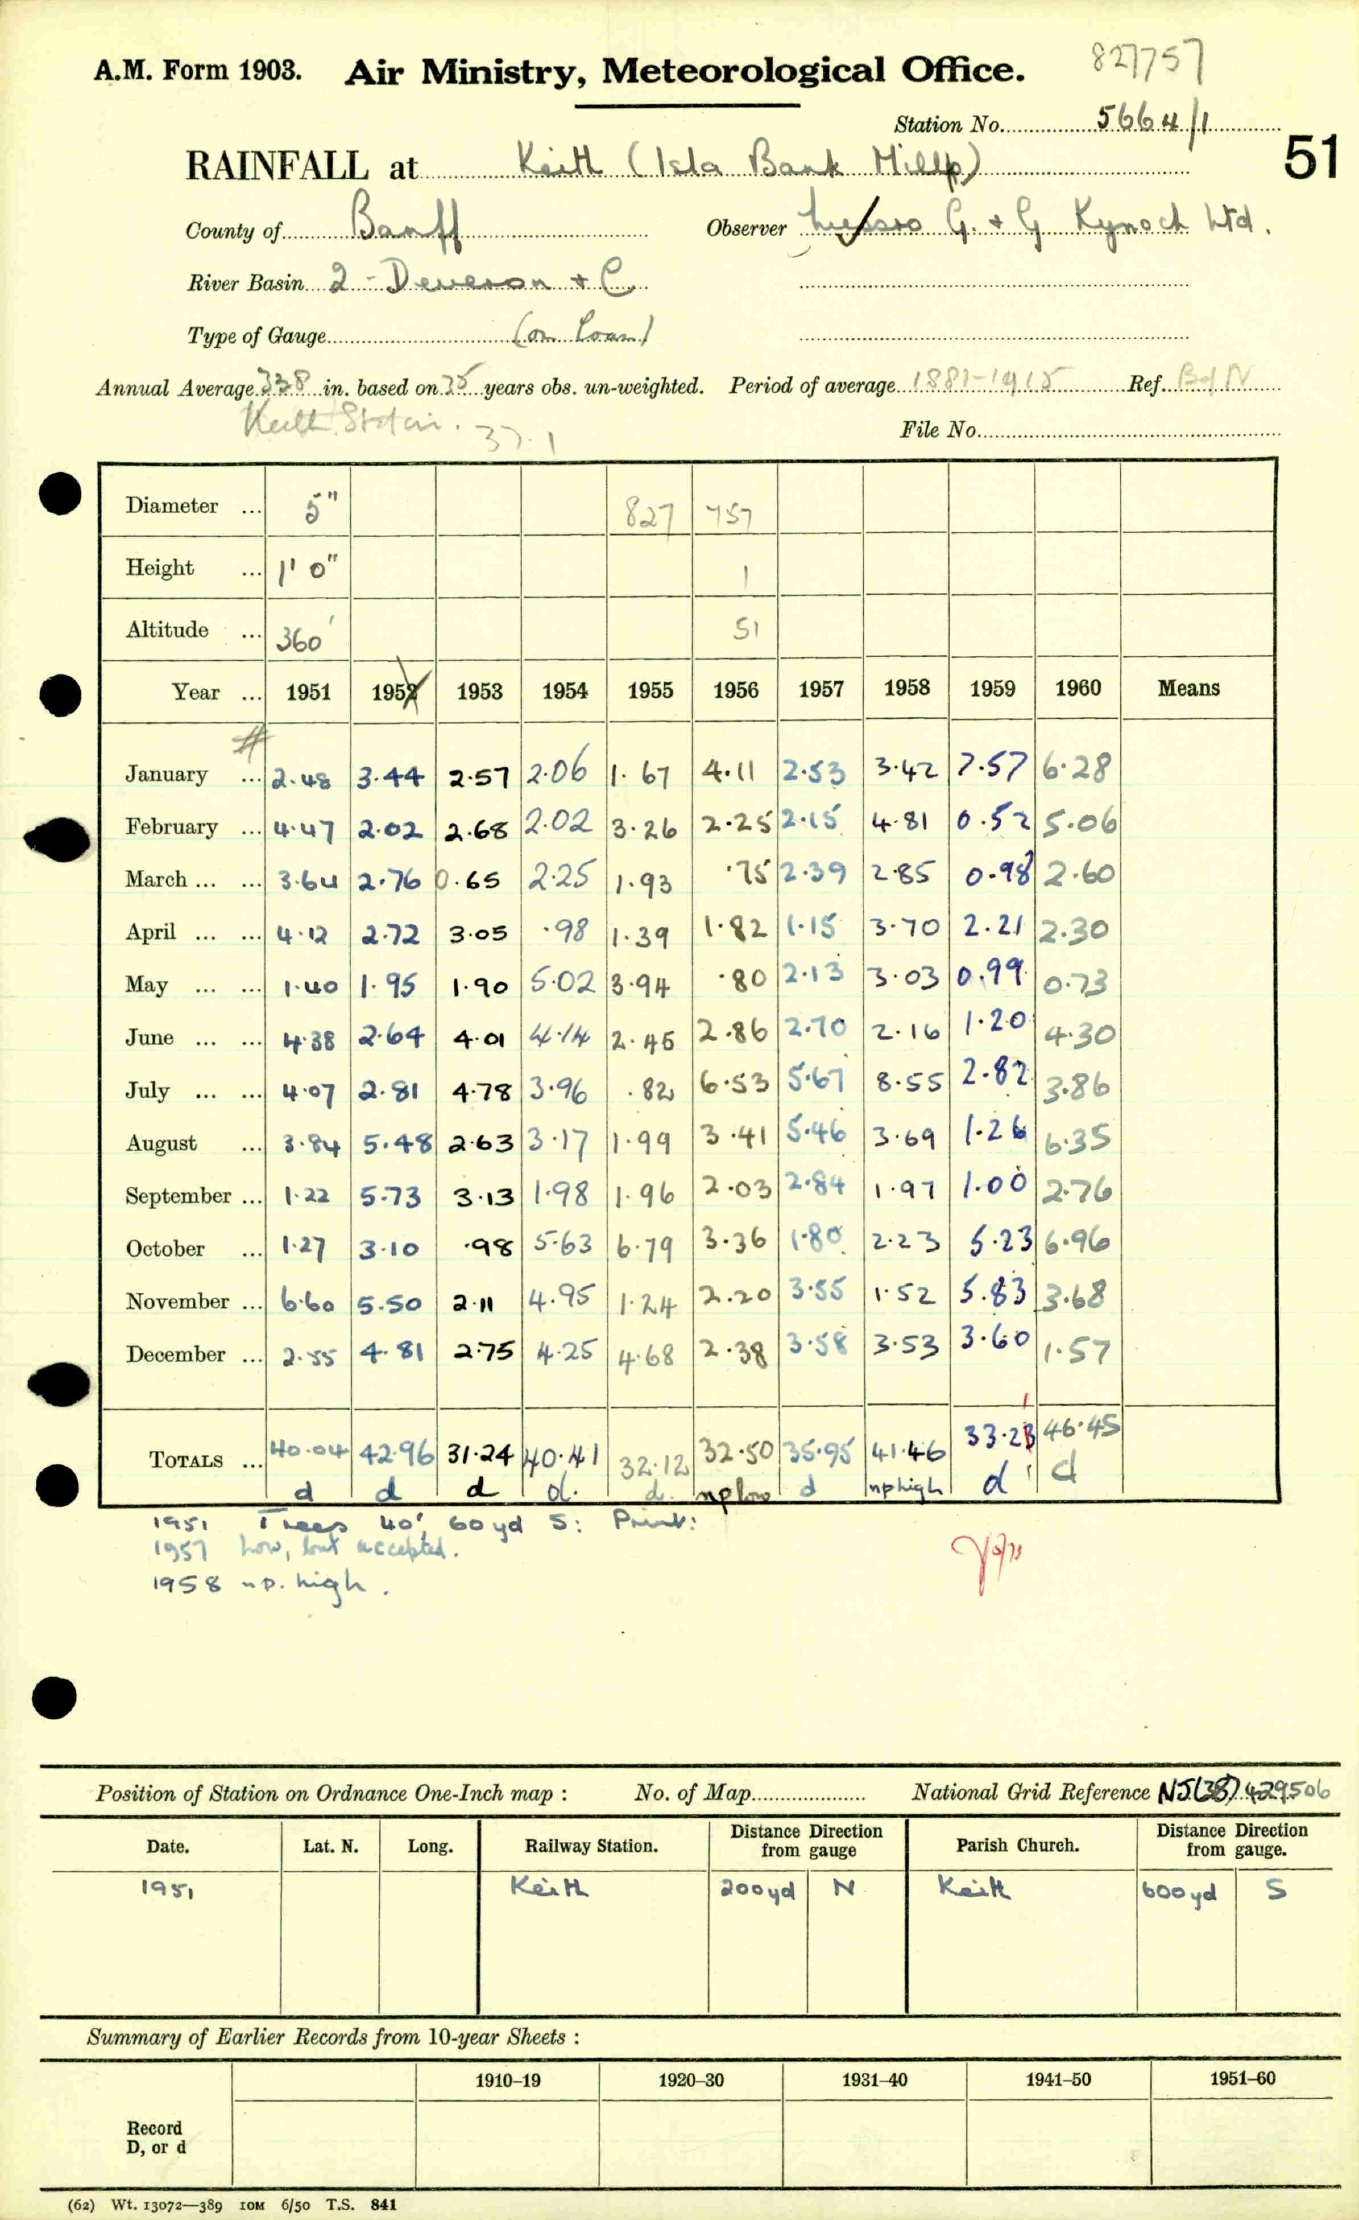 827757
A.M. Form 1903. Air Ministry, Meteorological Office.
Station No. 5664/1
51
RAINFALL at Keith (Isla Bank Mills)
County of Banff Observer Messrs G. & G Kynoch Ltd.
River Basin 2 - Deveron + C
Type of Gauge (on loan)
Annual Average 33.8 in. based on 35 years obs. un-weighted. Period of average 1881-1915 Ref. B of N
Keith Station. 37.1
File No.
Diameter ... 5" 827 757
Height ... 1' 0" 1
Altitude ... 360' 51
Year ... 1951 1952 1953 1954 1955 1956 1957 1958 1959 1960 Means
January ... 2.48 3.44 2.57 2.06 1.67 4.11 2.53 3.42 7.57 6.28
February ... 4.47 2.02 2.68 2.02 3.26 2.25 2.15 4.81 0.52 5.06
March ... ... 3.64 2.76 0.65 2.25 1.93 .75 2.39 2.85 0.98 2.60
April ... ... 4.12 2.72 3.05 .98 1.39 1.82 1.15 3.70 2.21 2.30
May ... ... 1.40 1.95 1.90 5.02 3.94 .80 2.13 3.03 0.99 0.73
June ... ... 4.38 2.64 4.01 4.14 2.45 2.86 2.70 2.16 1.20 4.30
July ... ... 4.07 2.81 4.78 3.96 .82 6.53 5.67 8.55 2.82 3.86
August ... 3.84 5.48 2.63 3.17 1.99 3.41 5.46 3.69 1.26 6.35
September ... 1.22 5.73 3.13 1.98 1.96 2.03 2.84 1.97 1.00 2.76
October ... 1.27 3.10 .98 5.63 6.79 3.36 1.80 2.23 5.23 6.96
November ... 6.60 5.50 2.11 4.95 1.24 2.20 3.55 1.52 5.83 3.68
December ... 2.55 4.81 2.75 4.25 4.68 2.38 3.58 3.53 3.60 1.57
TOTALS ... 40.04 42.96 31.24 40.41 32.12 32.50 35.95 41.46 33.23 46.45
d d d d. d. np low d np high d d
1951 Trees 40', 60yd S: Print:
1957 Low, but accepted.
1958 n.p. high.
Position of Station on Ordnance One-Inch map : No. of Map National Grid Reference NJ(38) 429506
Date. Lat. N. Long. Railway Station. Distance from Direction gauge Parish Church. Distance from Direction gauge.
1951 Keith 200yd N Keith 600yd S
Summary of Earlier Records from 10-year Sheets :
1910–19 1920–30 1931–40 1941–50 1951–60
Record
D, or d
(62) Wt. 13072—389 10M 6/50 T.S. 841